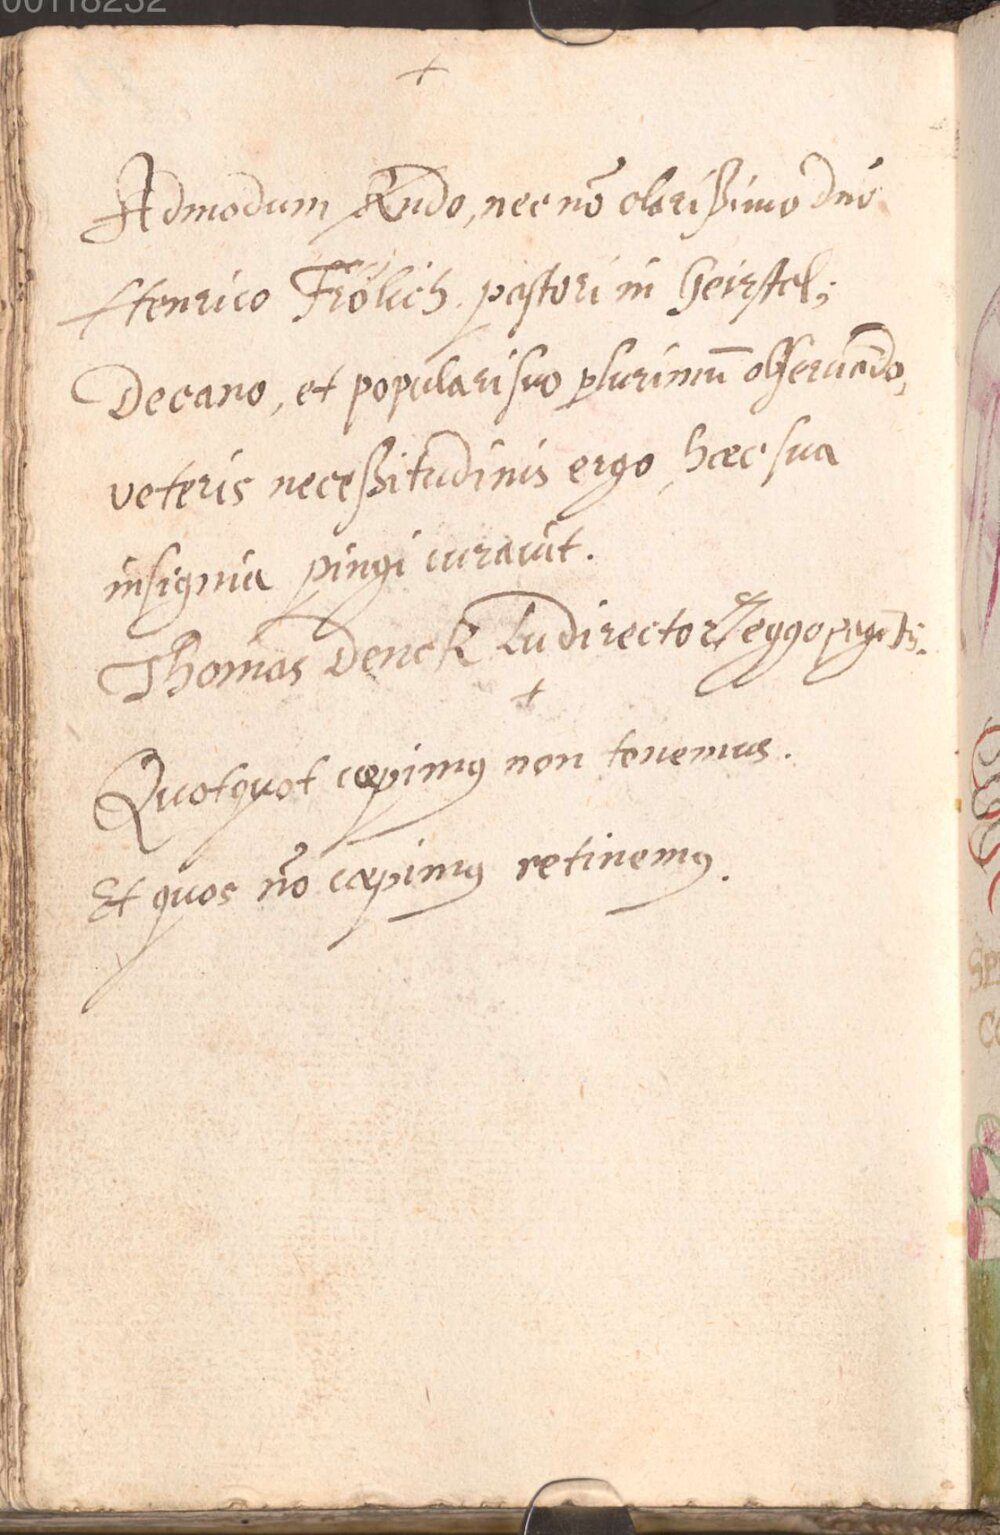 00118232
+
Admodum Rndo, nec nō clarißimo dnō
Henrico Frölich pastori in Geirstal;
Decano, et populari suo plurimū obseruādo,
veteris neceßitudinis ergo, hæc sua
insignia pingi curauit.
Thomas Denck Ludirector
+
Quotquot cæpimus non tenemus.
Et quos nō cæpimus retinemus.